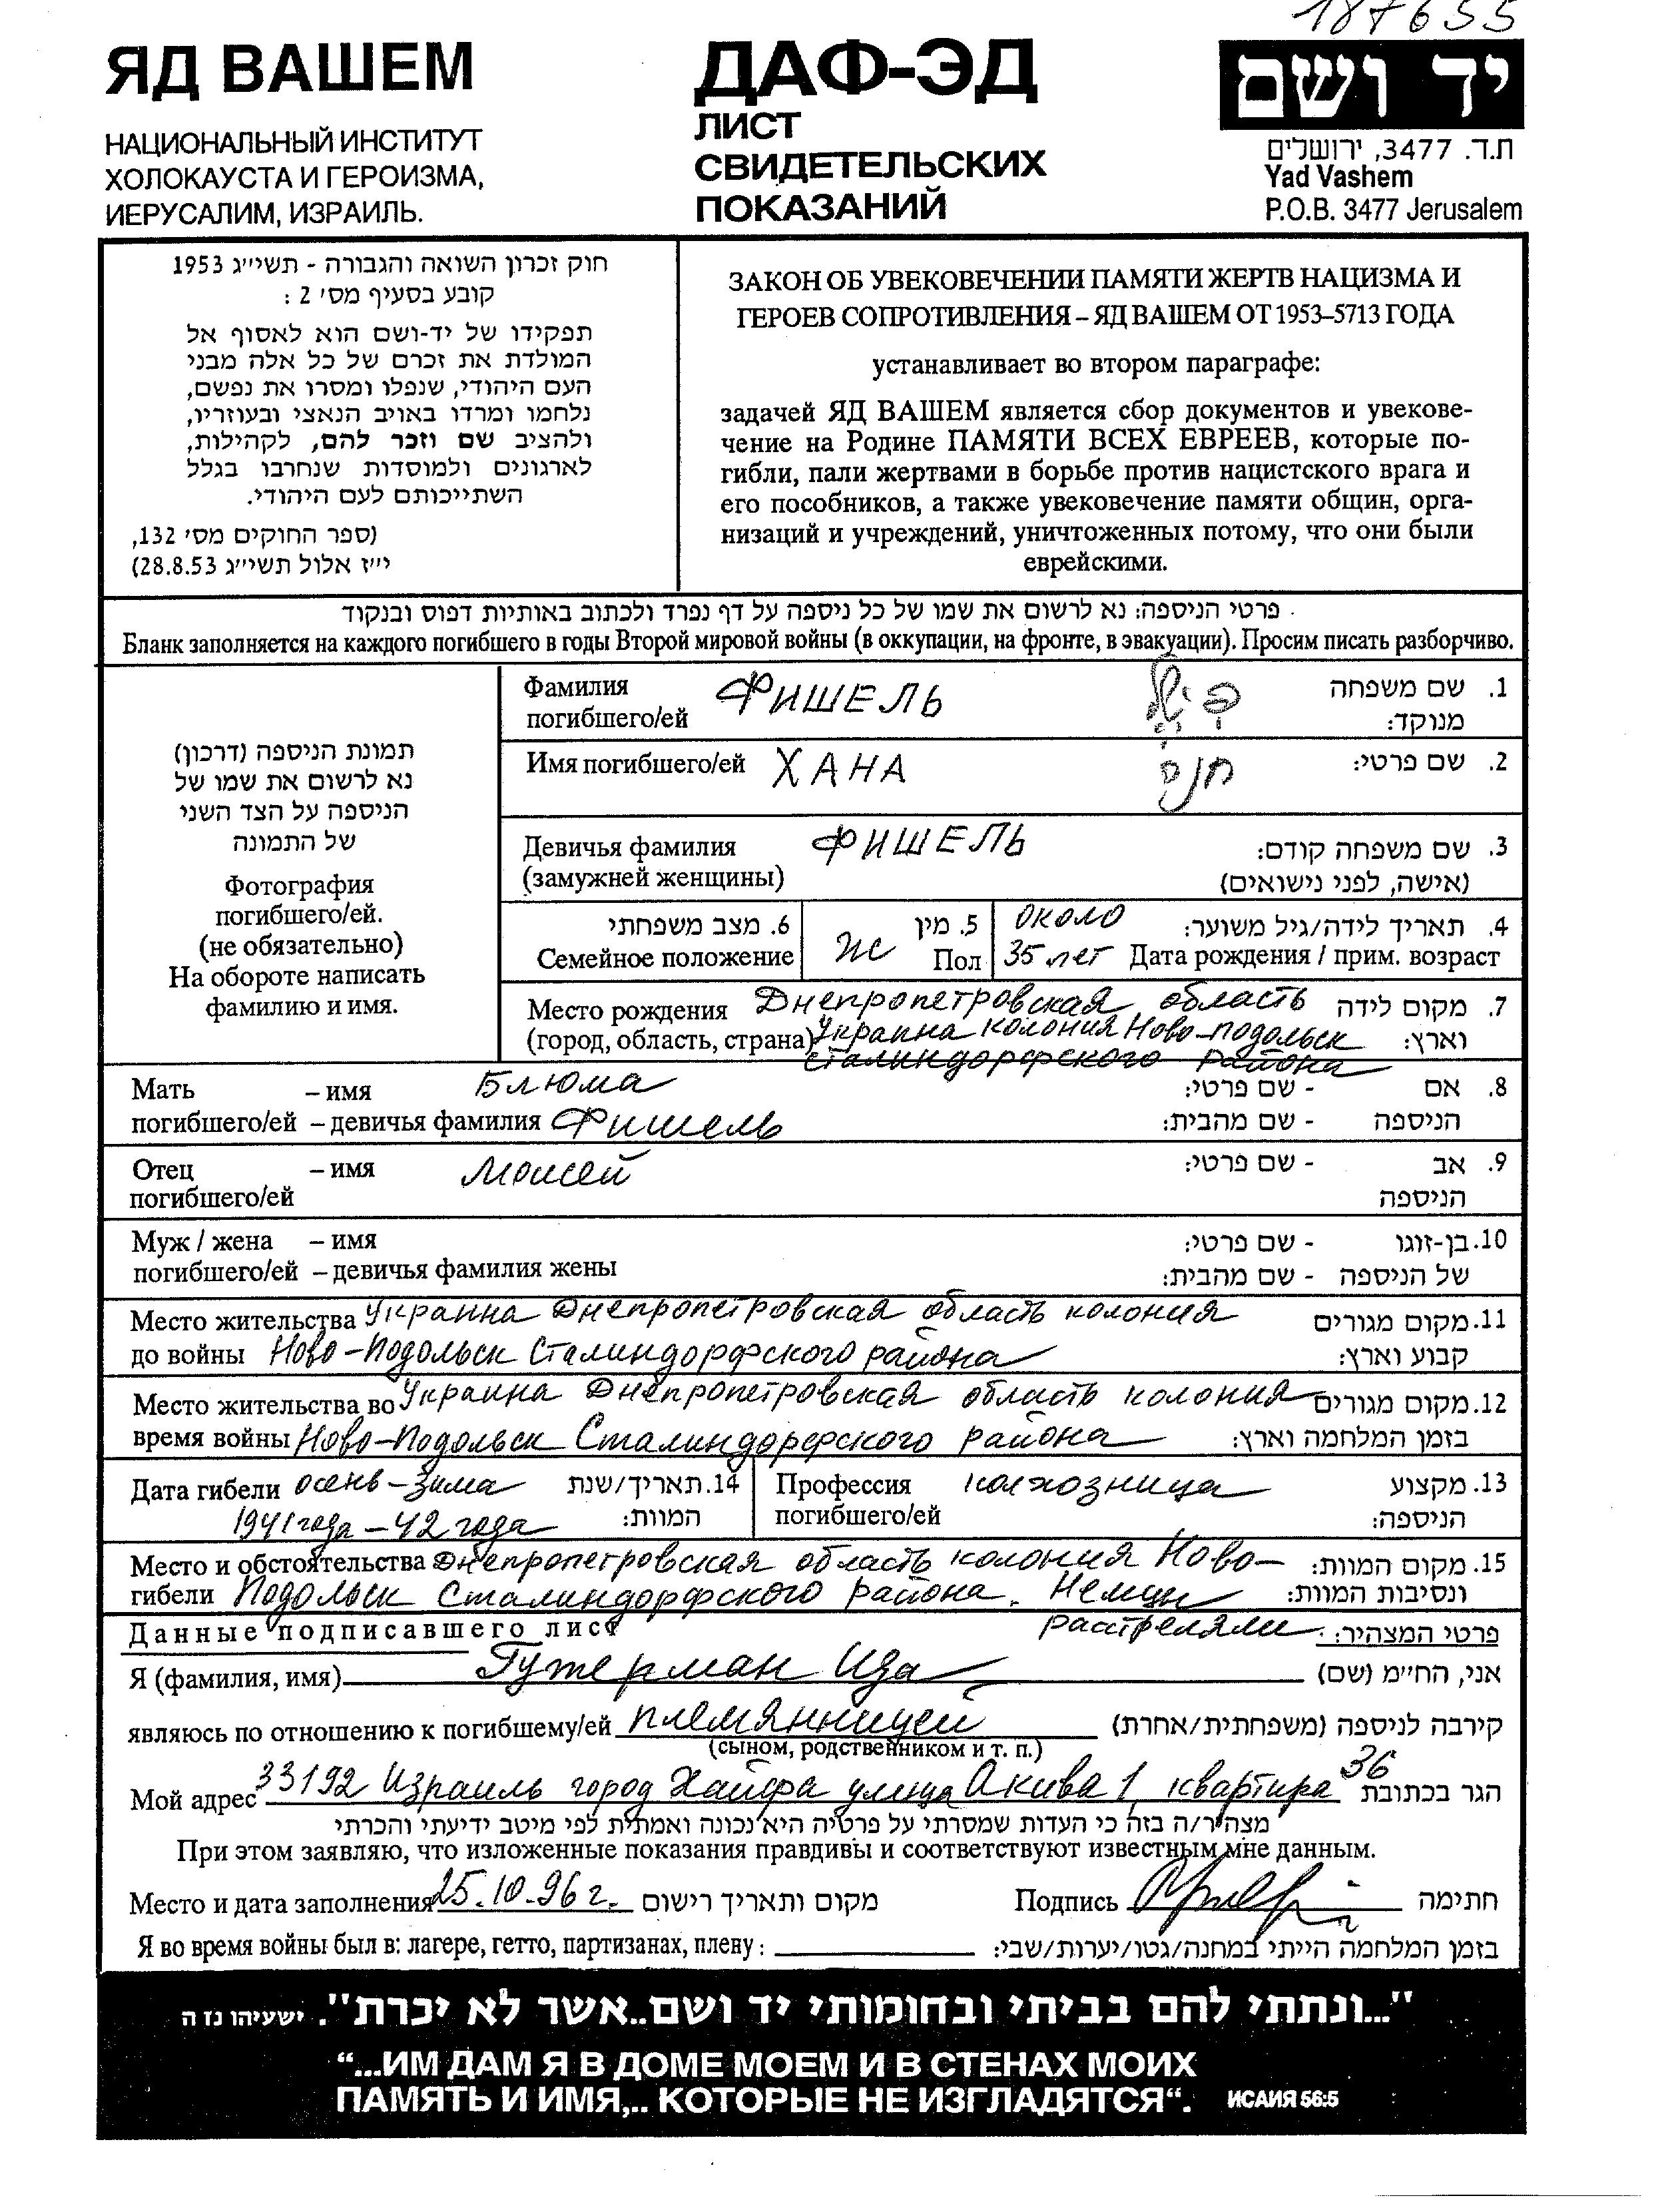 187653
ЯД ВАШЕМ
НАЦИОНАЛЬНЫЙ ИНСТИТУТ
ХОЛОКАУСТА И ГЕРОИЗМА,
ИЕРУСАЛИМ, ИЗРАИЛЬ.
ДАФ-ЭД
ЛИСТ
СВИДЕТЕЛЬСКИХ
ПОКАЗАНИЙ
יד ושם
ת.ד. 3477, ירושלים
Yad Vashem
P.O.B. 3477 Jerusalem
חוק זכרון השואה והגבורה - תשי״ג 1953
קובע בסעיף מס׳ 2 :
תפקידו של יד-ושם הוא לאסוף אל
המולדת את זכרם של כל אלה מבני
העם היהודי, שנפלו ומסרו את נפשם,
נלחמו ומרדו באויב הנאצי ובעוזריו,
ולהציב שם וזכר להם, לקהילות,
לארגונים ולמוסדות שנחרבו בגלל
השתייכותם לעם היהודי.
(ספר החוקים מס׳ 132,
י״ז אלול תשי״ג 28.8.53)
ЗАКОН ОБ УВЕКОВЕЧЕНИИ ПАМЯТИ ЖЕРТВ НАЦИЗМА И
ГЕРОЕВ СОПРОТИВЛЕНИЯ – ЯД ВАШЕМ ОТ 1953–5713 ГОДА
устанавливает во втором параграфе:
задачей ЯД ВАШЕМ является сбор документов и увекове-
чение на Родине ПАМЯТИ ВСЕХ ЕВРЕЕВ, которые по-
гибли, пали жертвами в борьбе против нацистского врага и
его пособников, а также увековечение памяти общин, орга-
низаций и учреждений, уничтоженных потому, что они были
еврейскими.
פרטי הניספה: נא לרשום את שמו של כל ניספה על דף נפרד ולכתוב באותיות דפוס ובנקוד
Бланк заполняется на каждого погибшего в годы Второй мировой войны (в оккупации, на фронте, в эвакуации). Просим писать разборчиво.
תמונת הניספה (דרכון)
נא לרשום את שמו של
הניספה על הצד השני
של התמונה
Фотография
погибшего/ей.
(не обязательно)
На обороте написать
фамилию и имя.
Фамилия ФИШЕЛЬ 1. שם משפחה
погибшего/ей מנוקד:
Имя погибшего/ей ХАНА חנה 2. שם פרטי:
Девичья фамилия ФИШЕЛЬ 3. שם משפחה קודם:
(замужней женщины) (אישה, לפני נישואים)
6. מצב משפחתי 5. מין около 4. תאריך לידה/גיל משוער:
Семейное положение ж Пол 35 лет Дата рождения / прим. возраст
Место рождения Днепропетровская область 7. מקום לידה
(город, область, страна) Украина колония Ново-Подольск וארץ:
Сталиндорфского района
Мать – имя Блюма 8. אם - שם פרטי:
погибшего/ей – девичья фамилия Фишель הניספה - שם מהבית:
Отец – имя Моисей 9. אב - שם פרטי:
погибшего/ей הניספה
Муж / жена – имя 10. בן-זוגו - שם פרטי:
погибшего/ей – девичья фамилия жены של הניספה - שם מהבית:
Место жительства Украина Днепропетровская область колония 11. מקום מגורים
до войны Ново-Подольск Сталиндорфского района קבוע וארץ:
Место жительства во Украина Днепропетровская область колония 12. מקום מגורים
время войны Ново-Подольск Сталиндорфского района בזמן המלחמה וארץ:
Дата гибели осень-зима 14. תאריך/שנת Профессия колхозница 13. מקצוע
1941 года – 42 года המוות: погибшего/ей הניספה:
Место и обстоятельства Днепропетровская область колония Ново- 15. מקום המוות:
гибели Подольск Сталиндорфского района. Немцы ונסיבות המוות:
Данные подписавшего лист расстреляли פרטי המצהיר:
Я (фамилия, имя) Гутерман Иза אני, הח״מ (שם)
являюсь по отношению к погибшему/ей племянницей קירבה לניספה (משפחתית/אחרת)
(сыном, родственником и т. п.)
Мой адрес 33192 Израиль город Хайфа улица Акива 1 квартира 36 הגר בכתובת
מצהיר/ה בזה כי העדות שמסרתי על פרטיה היא נכונה ואמתית לפי מיטב ידיעתי והכרתי
При этом заявляю, что изложенные показания правдивы и соответствуют известным мне данным.
Место и дата заполнения 25.10.96 г. מקום ותאריך רישום Подпись חתימה
Я во время войны был в: лагере, гетто, партизанах, плену : בזמן המלחמה הייתי במחנה/גטו/יערות/שבי:
"...ונתתי להם בביתי ובחומותי יד ושם..אשר לא יכרת". ישעיהו נז ה
“...ИМ ДАМ Я В ДОМЕ МОЕМ И В СТЕНАХ МОИХ
ПАМЯТЬ И ИМЯ,.. КОТОРЫЕ НЕ ИЗГЛАДЯТСЯ“. ИСАИЯ 56:5